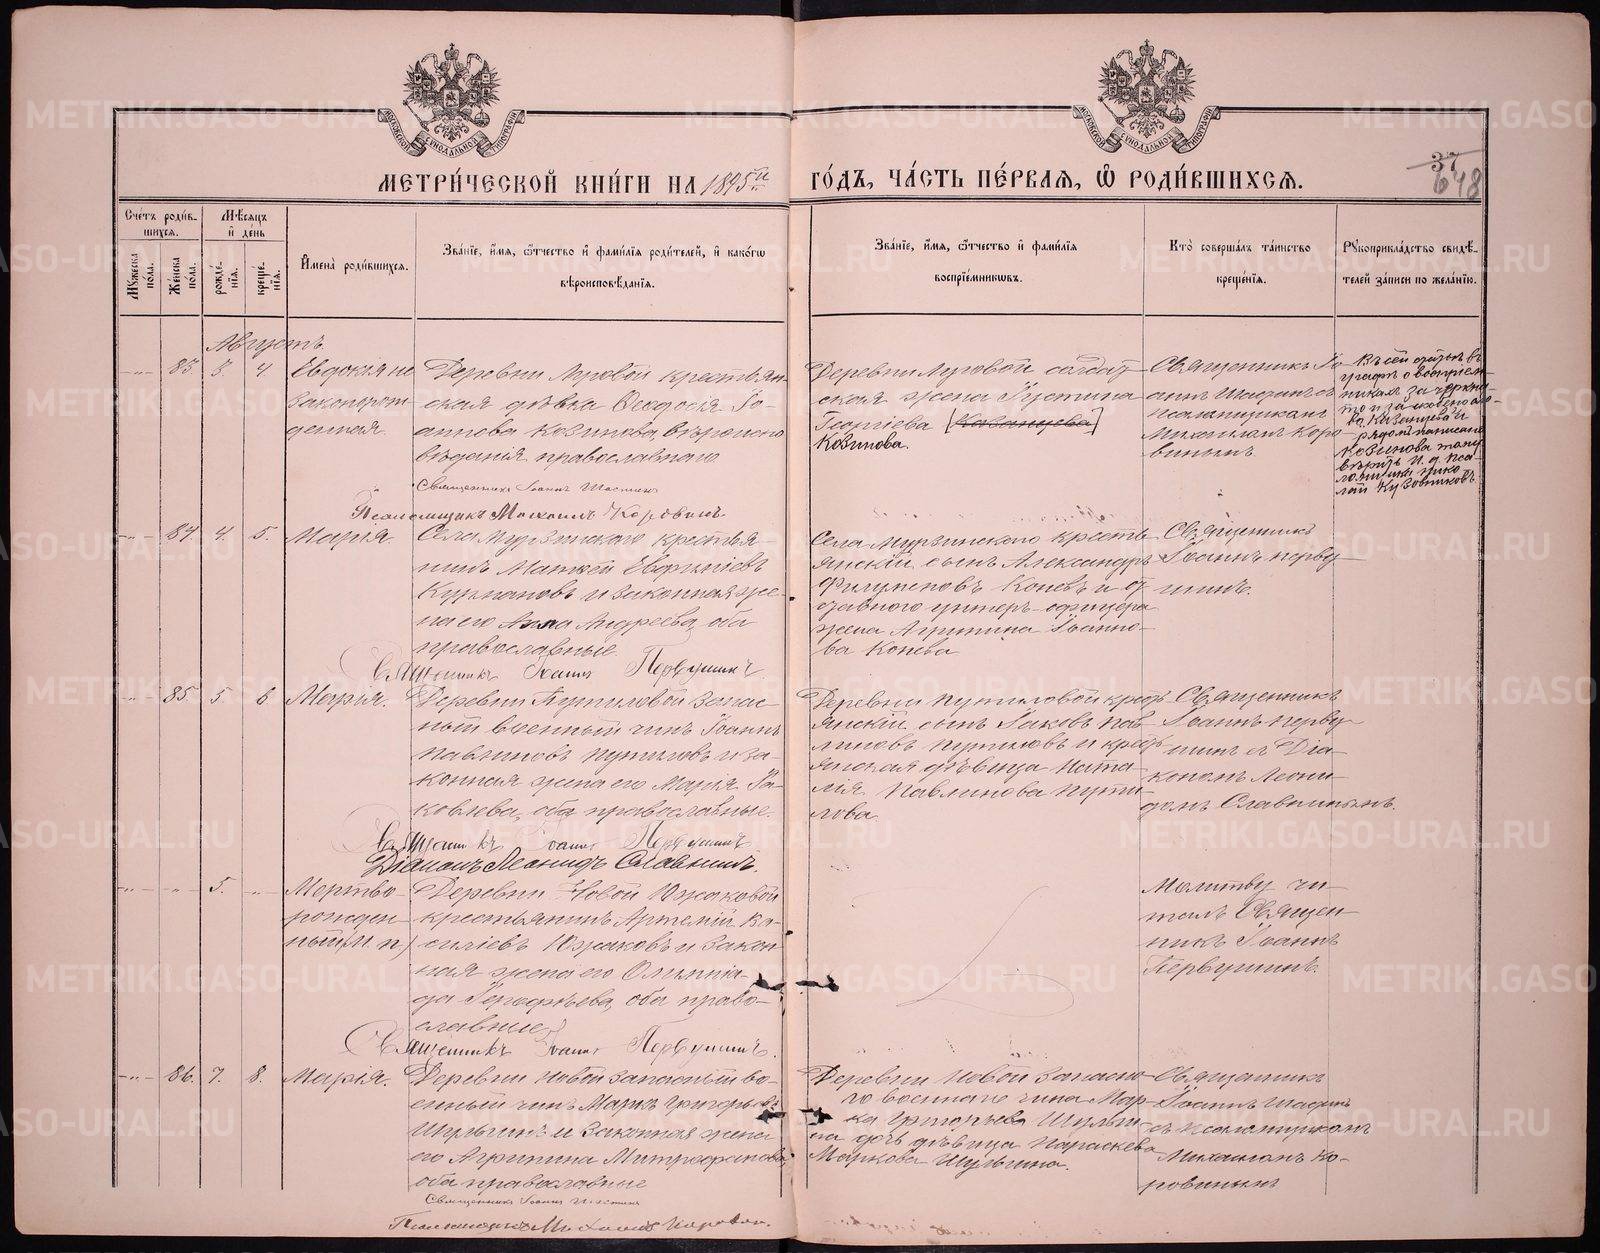 МЕТРИ́ЧЕСКОЙ КНИ́ГИ НА 1895й
ГО́ДЪ, ЧА́СТЬ ПЕ́РВАѦ, Ѿ РОДИ́ВШИХСѦ.
37
648
Сче́тъ роди́в-
шихсѧ.
Мужеска по́ла.
Же́нска по́ла.
Мѣ́сѧцъ
и҆ де́нь
рожде́-
нїѧ.
креще́-
нїѧ.
И҆мена̀ роди́вшихсѧ.
Зва́нїе, и҆́мѧ, ѻ҆́тчество и҆ фами́лїѧ роди́телей, и҆ како́гѡ
вѣроисповѣ́данїѧ.
Зва́нїе, и҆́мѧ, ѻ҆́тчество и҆ фами́лїѧ
воспрїе́мникѡвъ.
Кто̀ соверша́лъ та́инство
креще́нїѧ.
Рꙋкоприкла́дство свидѣ́-
телей за́писи по жела́нїю.
Августъ.
83. 3. 4.
Евдокія не
законорож
денная.
Деревни Луговой крестьян-
ская дѣвка Ѳеодосія Іо-
аннова Козинова, вѣроиспо-
вѣданія православнаго
Священникъ Іоаннъ
Псаломщикъ Михаилъ Коровинъ.
Деревни Луговой солдат-
ская жена Іустина
Георгіева [Казанцева]
Козинова.
Священникъ Іо-
аннъ съ
псаломщикомъ
Михаиломъ Коро-
винымъ
Въ сей статьѣ въ
графѣ о воспріем-
никахъ зачеркну-
то и за скобено сло-
во Казанцева и
рядомъ написано
Козинова
вѣритъ И. д. пса-
ломщика Нико-
лай Кузовниковъ
84. 4. 5.
Марія.
Села Мурзинского крестья-
нинъ Матѳей
и законная же-
на его Анна Андреева, оба
православные
Священникъ Іоаннъ Первушинъ
Села Мурзинского кресть-
янскій сынъ Александръ
Филуменовъ Коневъ и от-
ставного унтеръ-офицера
жена Агрипина Іоанно-
ва Конева
Священникъ
Іоаннъ Перву-
шинъ.
85. 5. 6
Марія.
Деревни Путиловой запас-
ный военный чинъ Іоаннъ
Павлиновъ Путиловъ и за-
конная жена его Марія Іа-
ковлева, оба православные.
Священникъ Іоаннъ Первушинъ
Діаконъ Леонидъ Славнинъ.
Деревни Путиловой крест-
янскій сынъ Іаковъ Пав-
линовъ Путиловъ и крест-
янская дѣвица Ната-
лія Павлинова Пути-
лова
Священникъ
Іоаннъ Перву-
шинъ съ Діа-
кономъ Леони-
домъ Славнинымъ.
5.
Мертво-
рожден-
ный (м. п.)
Деревни Новой Южаковой
крестьянинъ Артемій Ва-
силіевъ Южаковъ и закон-
ная жена его Олимпіа-
да Ерофѣева, оба право-
славные
Священникъ Іоаннъ Первушинъ.
Молитву чи-
талъ Священ-
никъ Іоаннъ
Первушинъ.
86. 7. 8.
Марія.
Деревни Новой запасный во-
енный чинъ Маркъ Григорьевъ
Шульгинъ и законная жена
его Агрипина Митрофанова,
оба православные
Священникъ Іоаннъ
Псаломщикъ Михаилъ Коровинъ.
Деревни Новой запасно-
го военнаго чина Мар-
ка Григорьева Шульги-
на дочь дѣвица Параскева
Маркова Шульгина.
Священникъ
Іоаннъ
съ псаломщикомъ
Михаиломъ Ко-
ровинымъ
METRIKI.GASO-URAL.RU